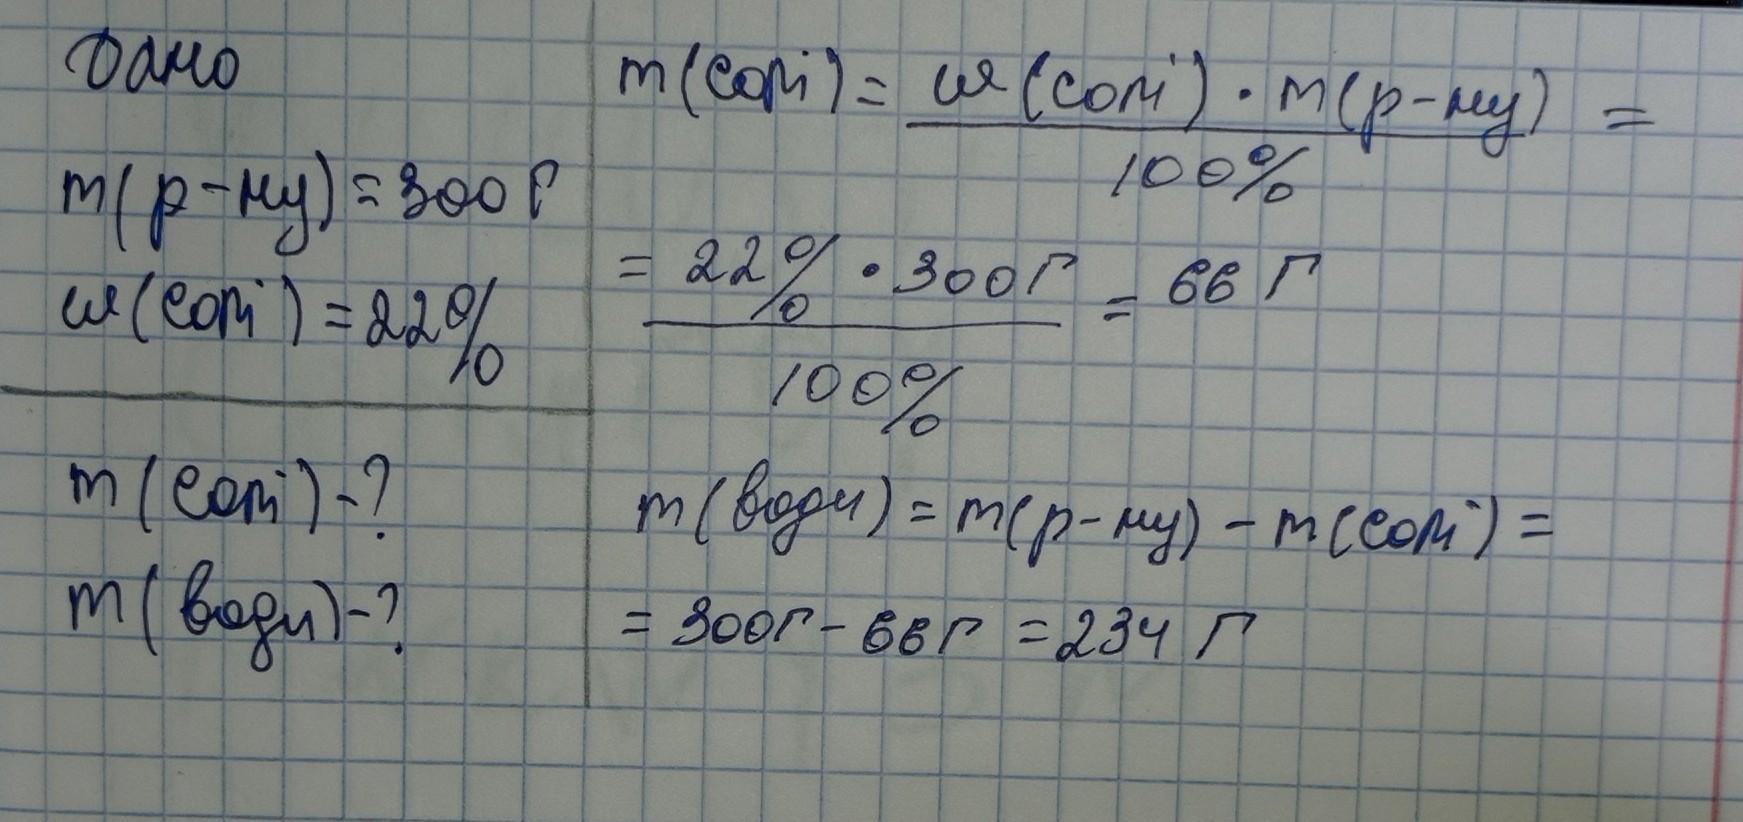 Дано
m(р-ну)=300г
ω(солі)=22%
m(солі)-?
m(води)-?
m(солі)= ω(солі)·m(р-ну) =
100%
= 22%·300г = 66 г
100%
m(води)=m(р-ну)-m(солі)=
=300г-66г=234 г